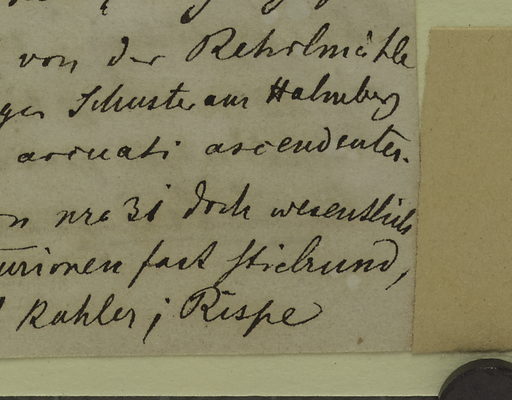 von der Rehrlmühle
ger Schuster am Halmberg
arcuati ascendentes.
nro 31 doch wesentlich
turionen fast stielrund,
kahler; Rispe